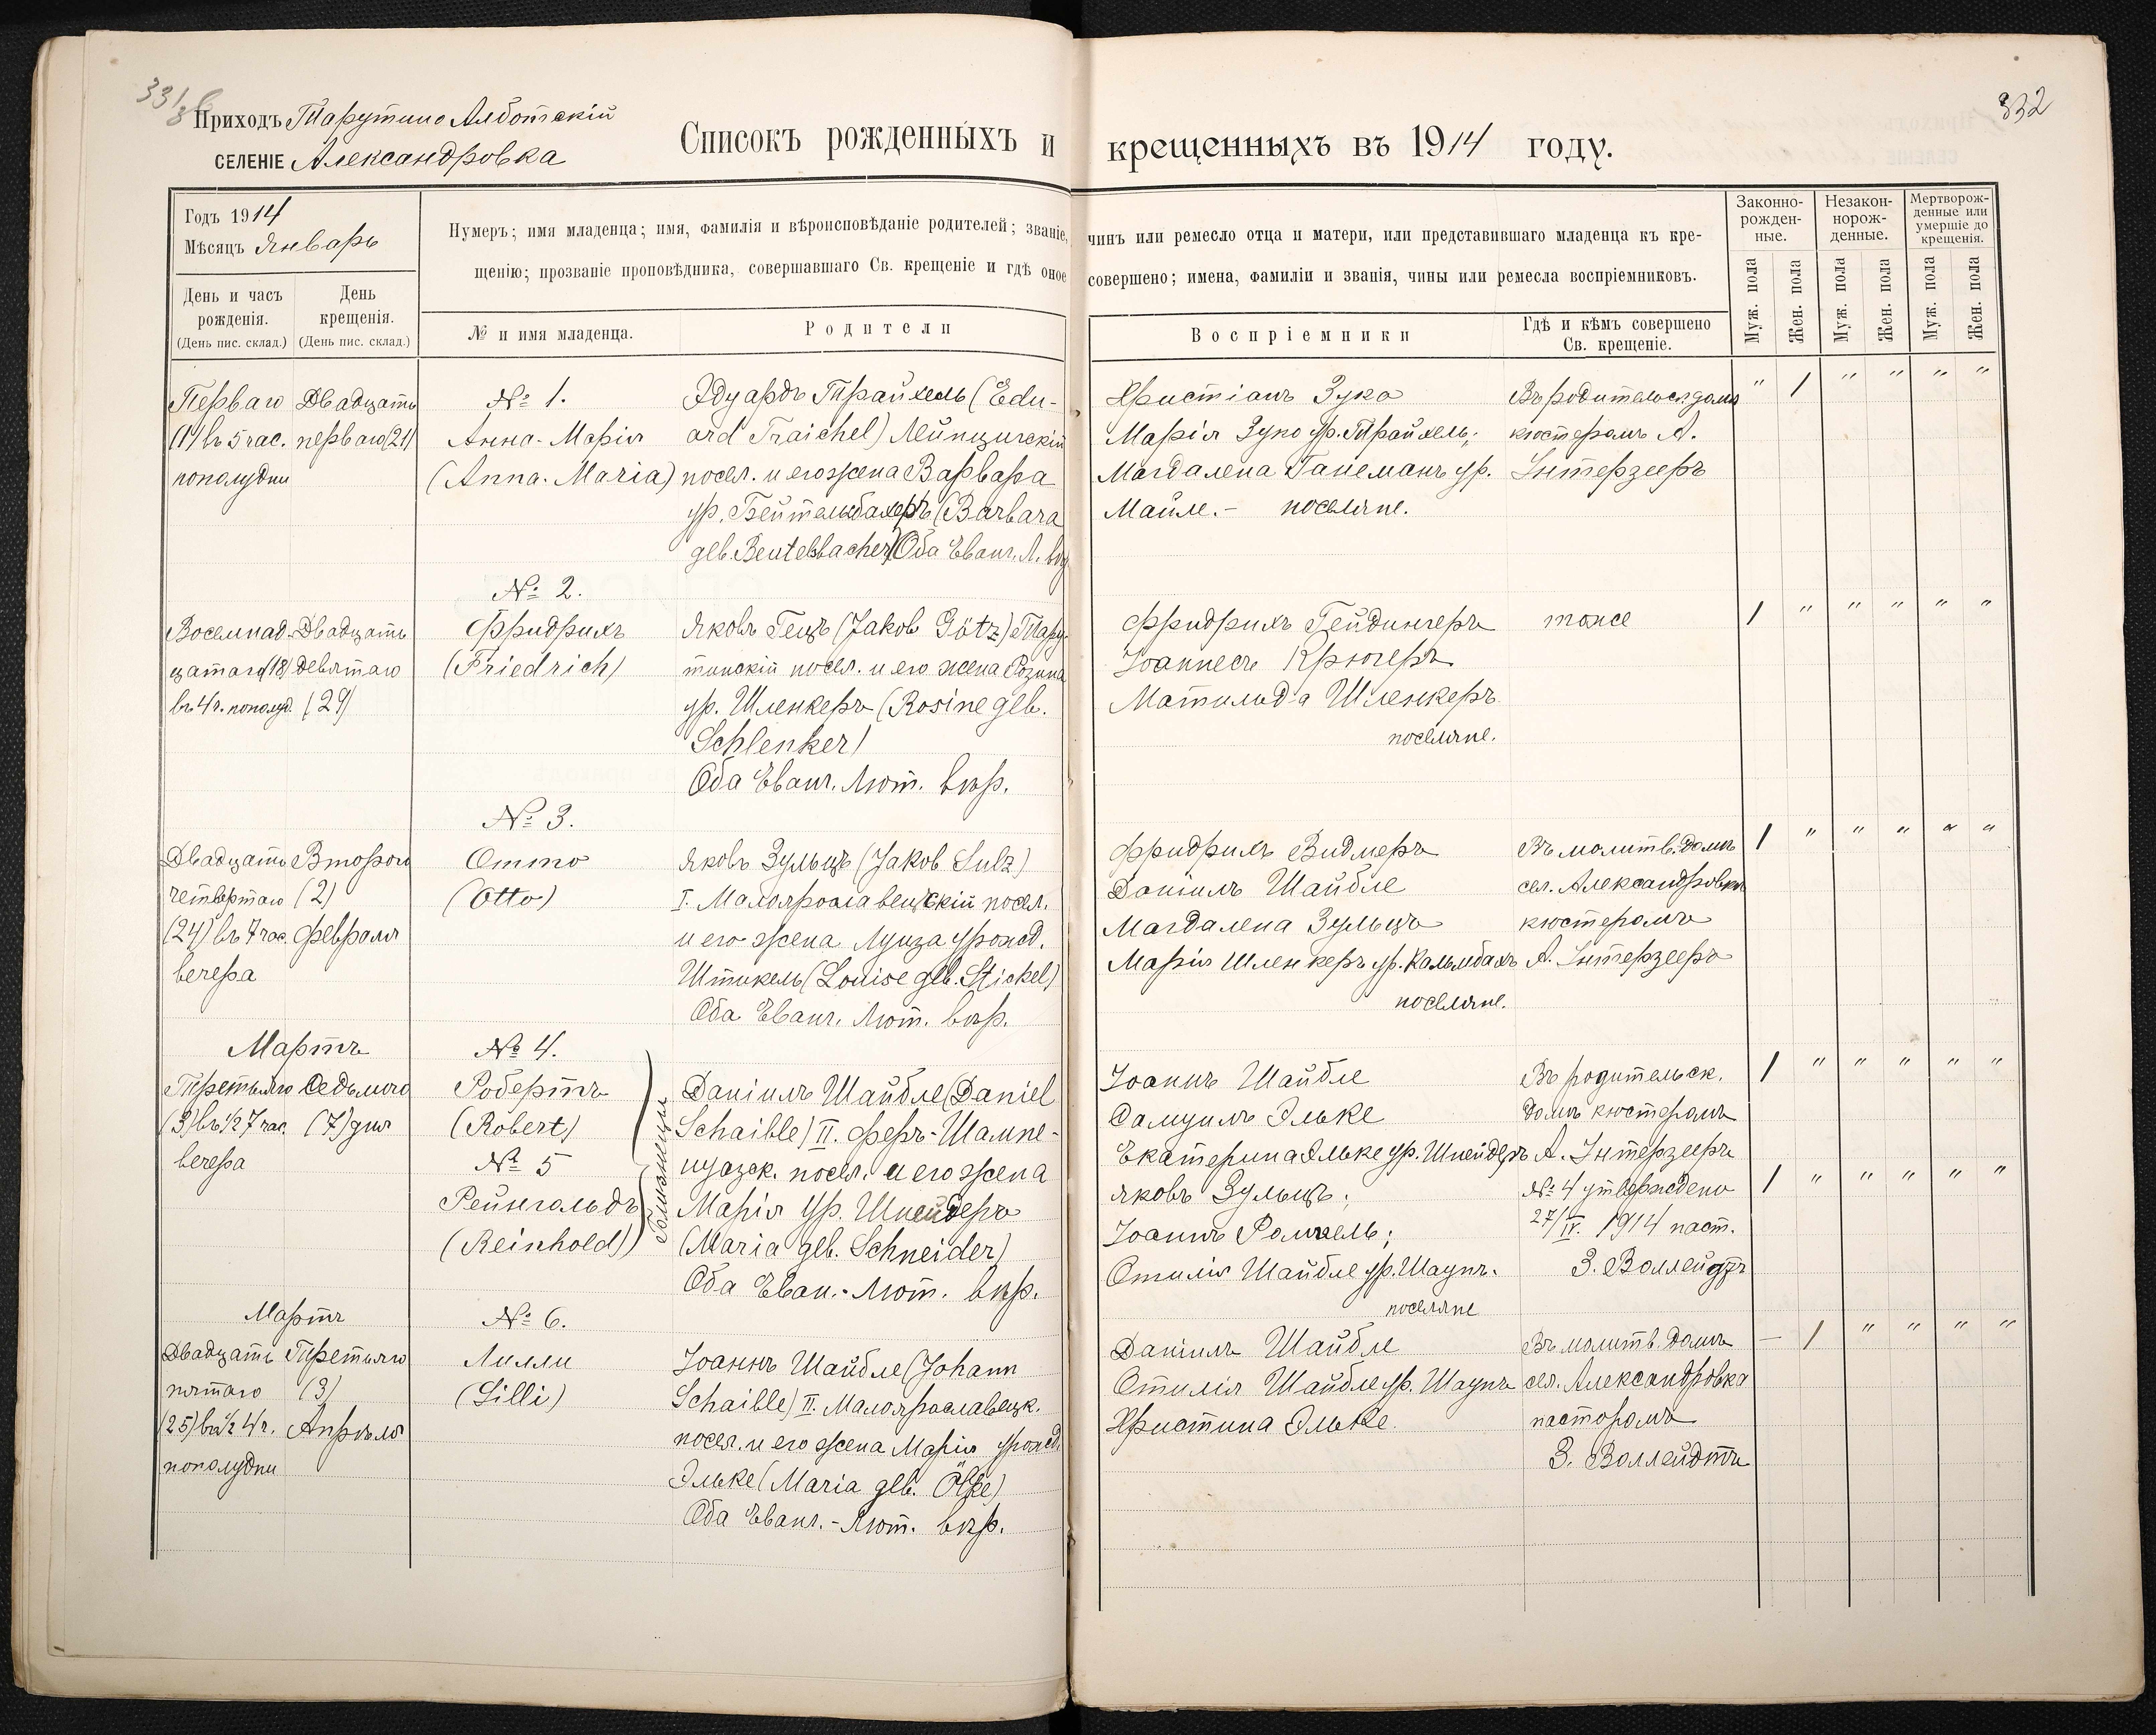 332
Приходъ Тарутино Алботскій
СЕЛЕНІЕ Александровка
Списокъ рожденныхъ и крещенныхъ въ 1914 году.
Годъ 1914
Мѣсяцъ Январь
День и часъ рожденія.
(День пис. склад.)
День крещенія.
(День пис. склад.)
Нумеръ; имя младенца; имя, фамилія и вѣроисповѣданіе родителей; званіе, чинъ или ремесло отца и матери, или представившаго младенца къ кре-
щенію; прозваніе проповѣдника, совершавшаго Св. крещеніе и гдѣ оное совершено; имена, фамиліи и званія, чины или ремесла воспріемниковъ.
№ и имя младенца.
Родители
Воспріемники
Гдѣ и кѣмъ совершено
Св. крещеніе.
Законно-
рожден-
ные.
Незакон-
норож-
денные.
Мертворож-
денные или
умершіе до
крещенія.
Муж. пола
Жен. пола
Муж. пола
Жен. пола
Муж. пола
Жен. пола
Перваго
(1) въ 5 час.
пополудни
Двадцать
перваго (21)
№ 1.
Анна-Марія
(Anna-Maria)
Эдуардъ Трайхель (Edu-
ard Traichel) Лейпцигскій
посел. и его жена Варвара
ур. Бейтельбахеръ (Barbara
geb. Beutelsbacher) Оба Еванг. Л. вѣр
Христіанъ Зуко
Марія Зуко ур. Трайхель;
Магдалена Ганеманъ ур.
Майле. - поселяне.
Въ родительск. домѣ
кюстеромъ А.
Интерзееръ
" 1 " " " "
Восемнад-
цатаго (18)
въ 4 ч. пополуд.
Двадцать
девятаго
(29)
№ 2.
Фридрихъ
(Friedrich)
Яковъ Гецъ (Jakob Götz) Тару-
тинскій посел. и его жена Розина
ур. Шленкеръ (Rosine geb.
Schlenker)
Оба Еванг. Лют. вѣр.
Фридрихъ Гейдингеръ
Іоаннесъ Крюгеръ
Матильда Шленкеръ
поселяне.
тоже
1 " " " " "
Двадцать
четвертаго
(24) въ 7 час.
вечера
Второго
(2)
февраля
№ 3.
Отто
(Otto)
Яковъ Зульцъ (Jakob Sulz)
I. Малоярославецкій посел.
и его жена Луиза урожд.
Штикель (Louise geb. Stickel)
Оба Еванг. Лют. вѣр.
Фридрихъ Видмеръ
Даніилъ Шайбле
Магдалена Зульцъ
Марія Шленкеръ ур. Кальмбахъ
поселяне.
Въ молитв. домѣ
сел. Александровка
кюстеромъ
А. Интерзееръ
1 " " " " "
Мартъ
Третьяго
(3) въ ½ 7 час.
вечера
Седьмого
(7) дня
№ 4.
Робертъ
(Robert)
№ 5
Рейнгольдъ
(Reinhold)
близнецы
Даніилъ Шайбле (Daniel
Schaible) II. Феръ-Шампе-
нуазск. посел. и его жена
Марія ур. Шнейдеръ
(Maria geb. Schneider)
Оба Еван.-Лют. вѣр.
Іоаннъ Шайбле
Самуилъ Эльке
Екатерина Эльке ур. Шнейдеръ
Яковъ Зульцъ;
Іоаннъ Роммель;
Отилія Шайбле ур. Шаупъ.
поселяне
Въ родительск.
домѣ кюстеромъ
А. Интерзееръ
№ 4 утверждено
27/IV. 1914 паст.
З. Воллейдтъ
1 " " " " "
1 " " " " "
Мартъ
Двадцать
пятаго
(25) въ ½ 4 ч.
пополудни
Третьяго
(3)
Апрѣля
№ 6.
Лилли
(Lilli)
Іоаннъ Шайбле (Johann
Schaible) II. Малоярославецк.
посел. и его жена Марія урожд.
Эльке (Maria geb. Ölke)
Оба Еванг.-Лют. вѣр.
Даніилъ Шайбле
Отилія Шайбле ур. Шаупъ
Христина Эльке.
Въ молитв. домѣ
сел. Александровка
пасторомъ
З. Воллейдтъ
— 1 " " " "